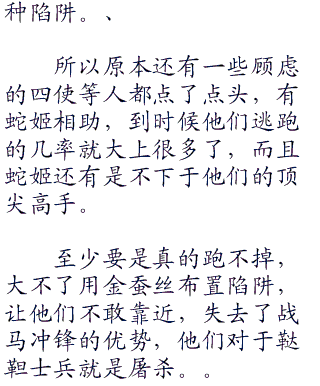 种陷阱。、
所以原本还有一些顾虑
的四使等人都点了点头，有
蛇姬相助，到时候他们逃跑
的几率就大上很多了，而且
蛇姬还有是不下于他们的顶
尖高手。
至少要是真的跑不掉，
大不了用金蚕丝布置陷阱，
让他们不敢靠近，失去了战
马冲锋的优势，他们对于鞑
靼士兵就是屠杀。。